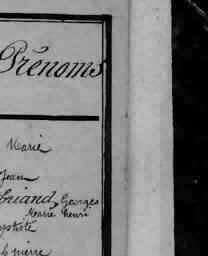 Prénoms
Marie
Jean
briand, Georges
Marie Henri
aptiste
pierre